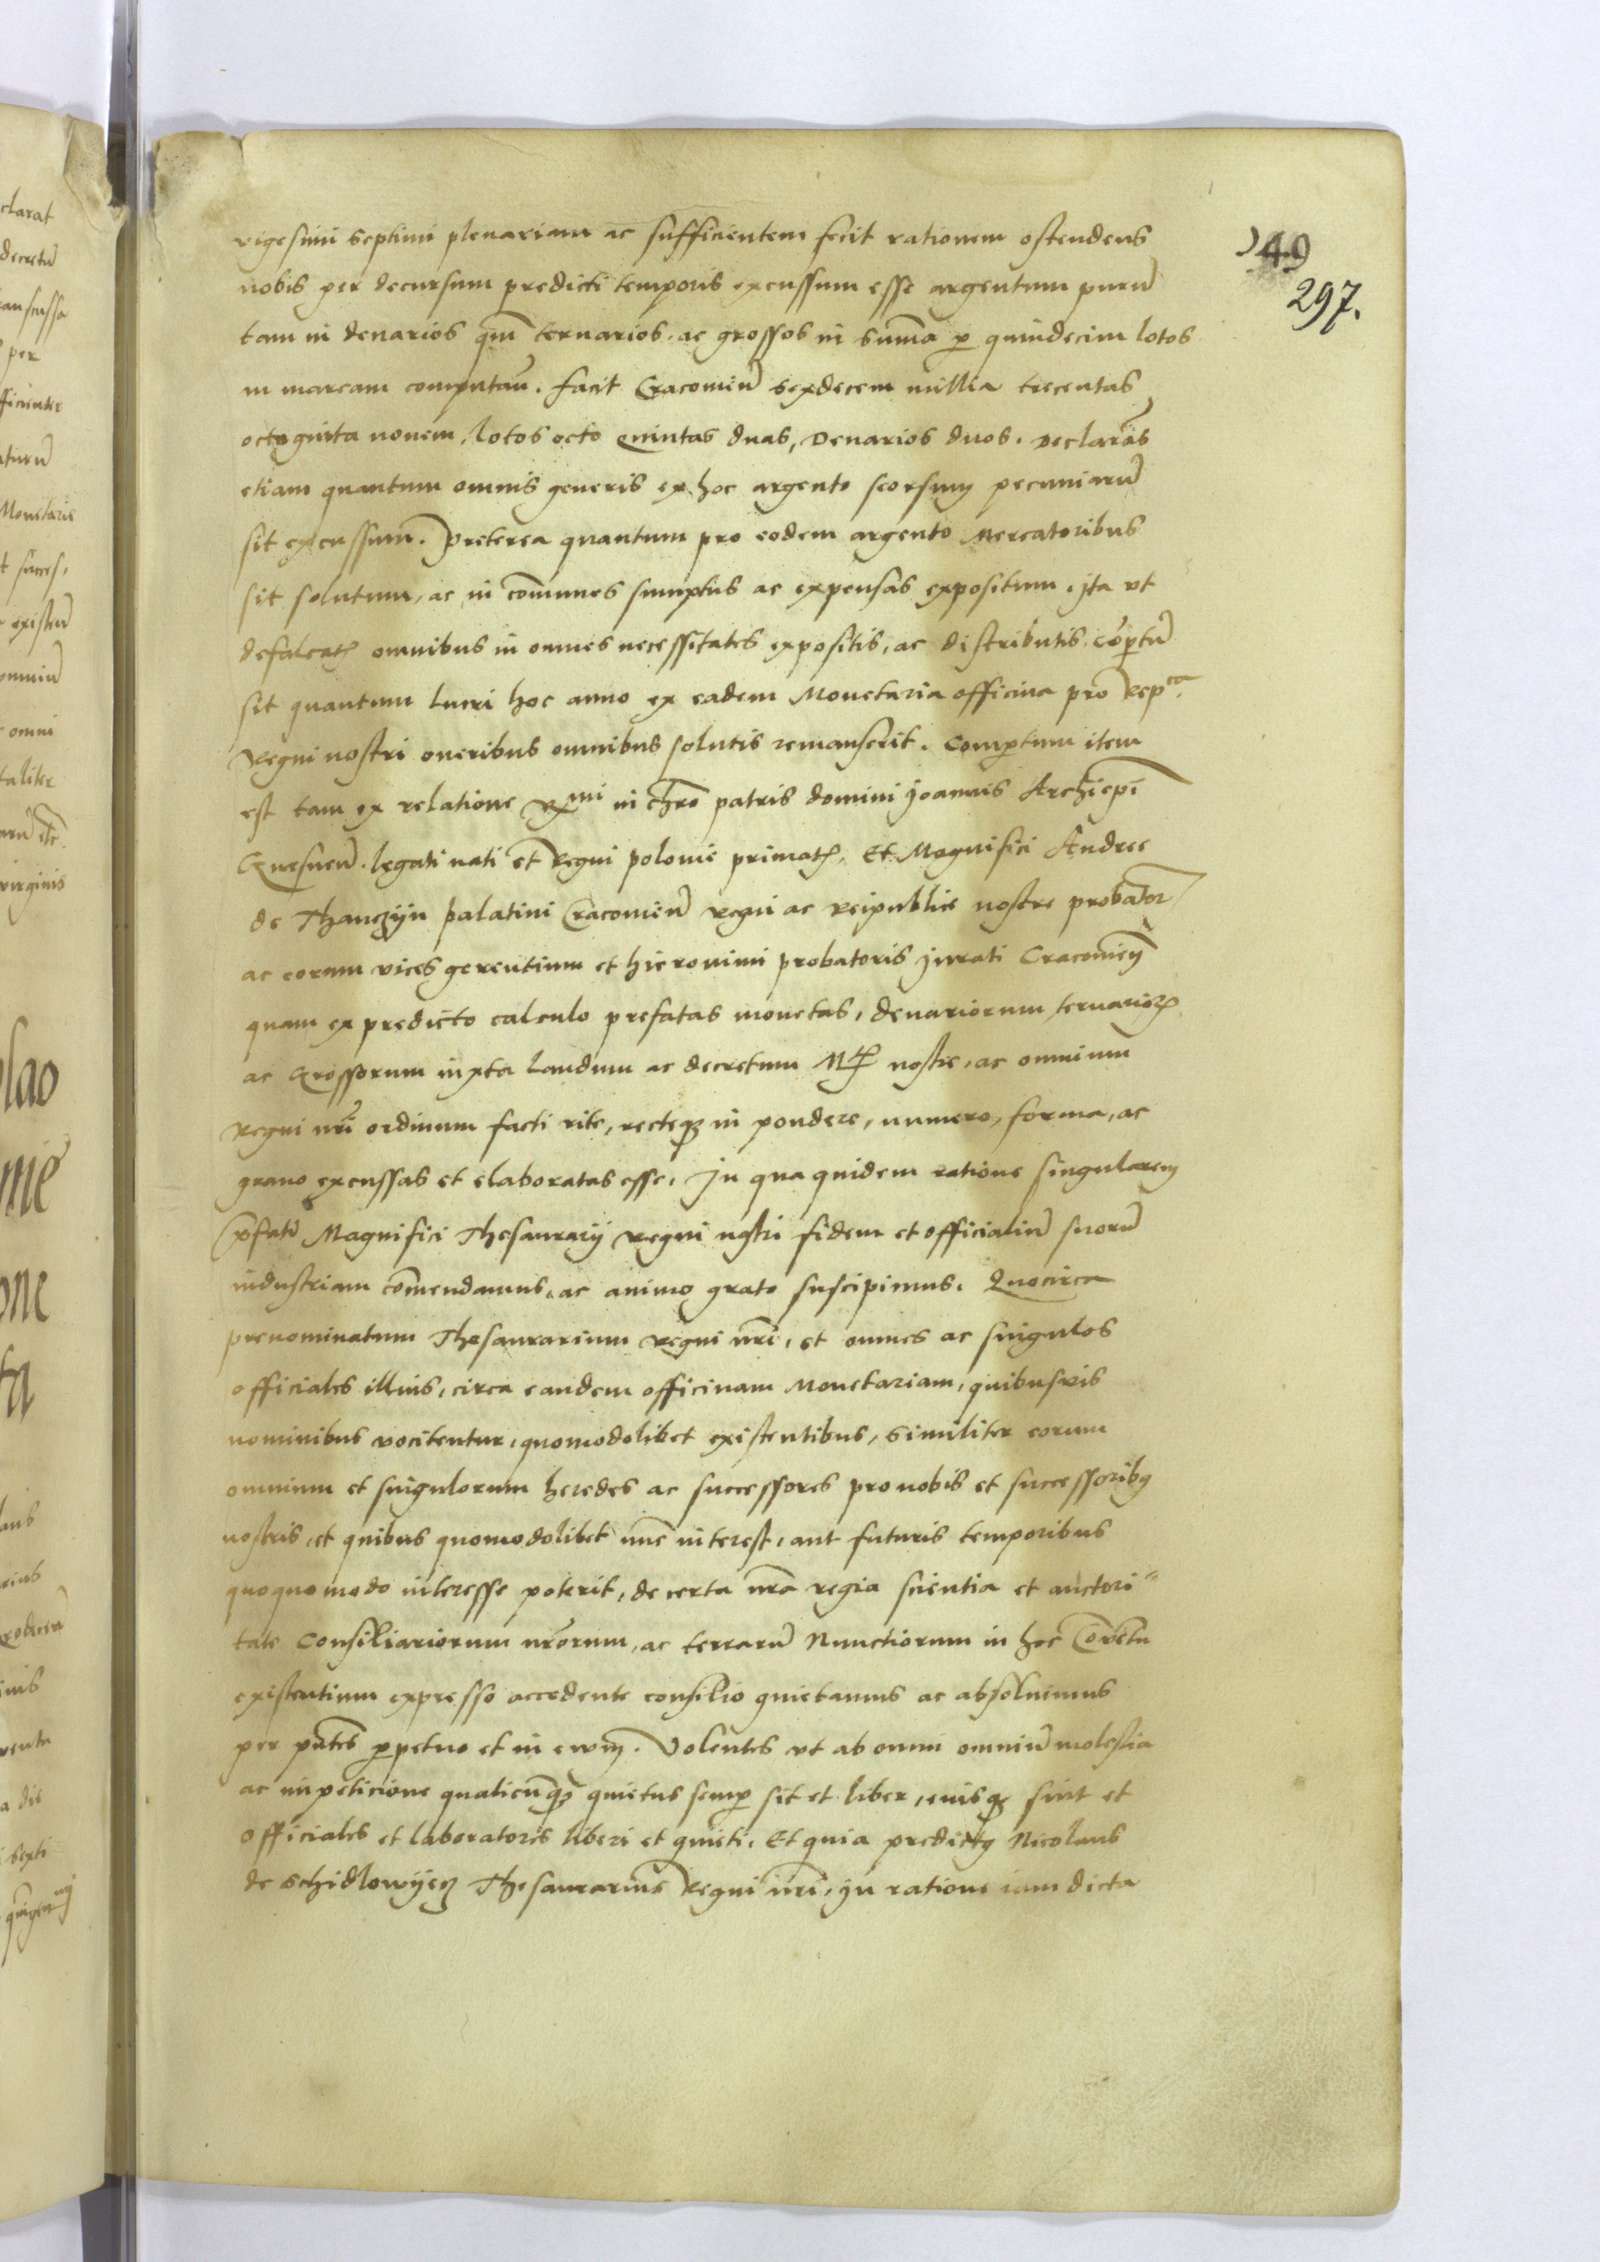 149
297.
vigesimi septimi plenariam ac sufficientem fecit rationem ostendens
nobis per decursum predicti temporis excussum esse argentum purū
tam in denarios qm̄ ternarios, ac grossos in summa p quindecim lotos
in marcam computan̄. facit Cracovien̄ sexdecem millia trecentas
octoginta novem, lotos octo quintas duas, Denarios duos. Declarās
etiam quantum omnis generis ex hoc argento seorsum pecuniarū
sit excussum. Preterea quantum pro eodem argento Mercatoribus
sit solutum, ac in cōmunes sumptus ac expensas expositum, ita vt
defalcatꝭ omnibus in omnes necessitates expositis, ac distributis, cōpertū
sit quantum lucri hoc anno ex eadem Monetaria officina pro Repca.
Regni nostri oneribus omnibus solutis remanserit. Compertum item
est tam ex relatione Rmi in chro patris domini Joannis Archiepi
Gnesnen̄. legati nati et Regni polonie primatꝭ, Et Magnifici Andree
de Thanczijn palatini Cracovien̄ regni ac Reipublice nostre probator
ac eorum vices gerentium et hieronimi probatoris jurati Cracovien̄
quam ex predicto calculo prefatas monetas, denariorum ternarioꝝ
ac Grossorum iuxta laudum ac decretum Mtꝭ nostre, ac omnium
Regni nrī ordinum facti rite, recteqꝫ in pondere, numero, forma, ac
grano excussas et elaboratas esse, In qua quidem ratione singularem
p̄fati Magnifici Thesaurarij regni nostri fidem et officialiū suorū
industriam cōmendamus, ac animo grato suscipimus. Quocirca
prenominatum Thesaurarium regni nrī, et omnes ac singulos
officiales illius, circa eandem officinam Monetariam, quibusvis
nominibus vocitentur, quomodolibet existentibus, Similiter eorum
omnium et singulorum heredes ac successores pro nobis et successoribꝰ
nostris, et quibus quomodolibet nūc interest, aut futuris temporibus
quoquo modo interesse poterit, de certa nrā regia scientia et auctori=
tate Consiliariorum nrōrum, ac terrarū Nunctiorum in hoc Cōventu
existentium expresso accedente consilio quietamus ac absoluimus
per pn̄tes ꝑpetuo et in evum. Volentes vt ab omni omniū molestia
ac impeticione qualicunqꝫ quietus semꝑ sit et liber, eiusqꝫ sint et
officiales et laboratores liberi et quieti, Et quia predictꝰ Nicolaus
de Schidlowijecz Thesaurarius Regni nrī, in ratione iam dicta